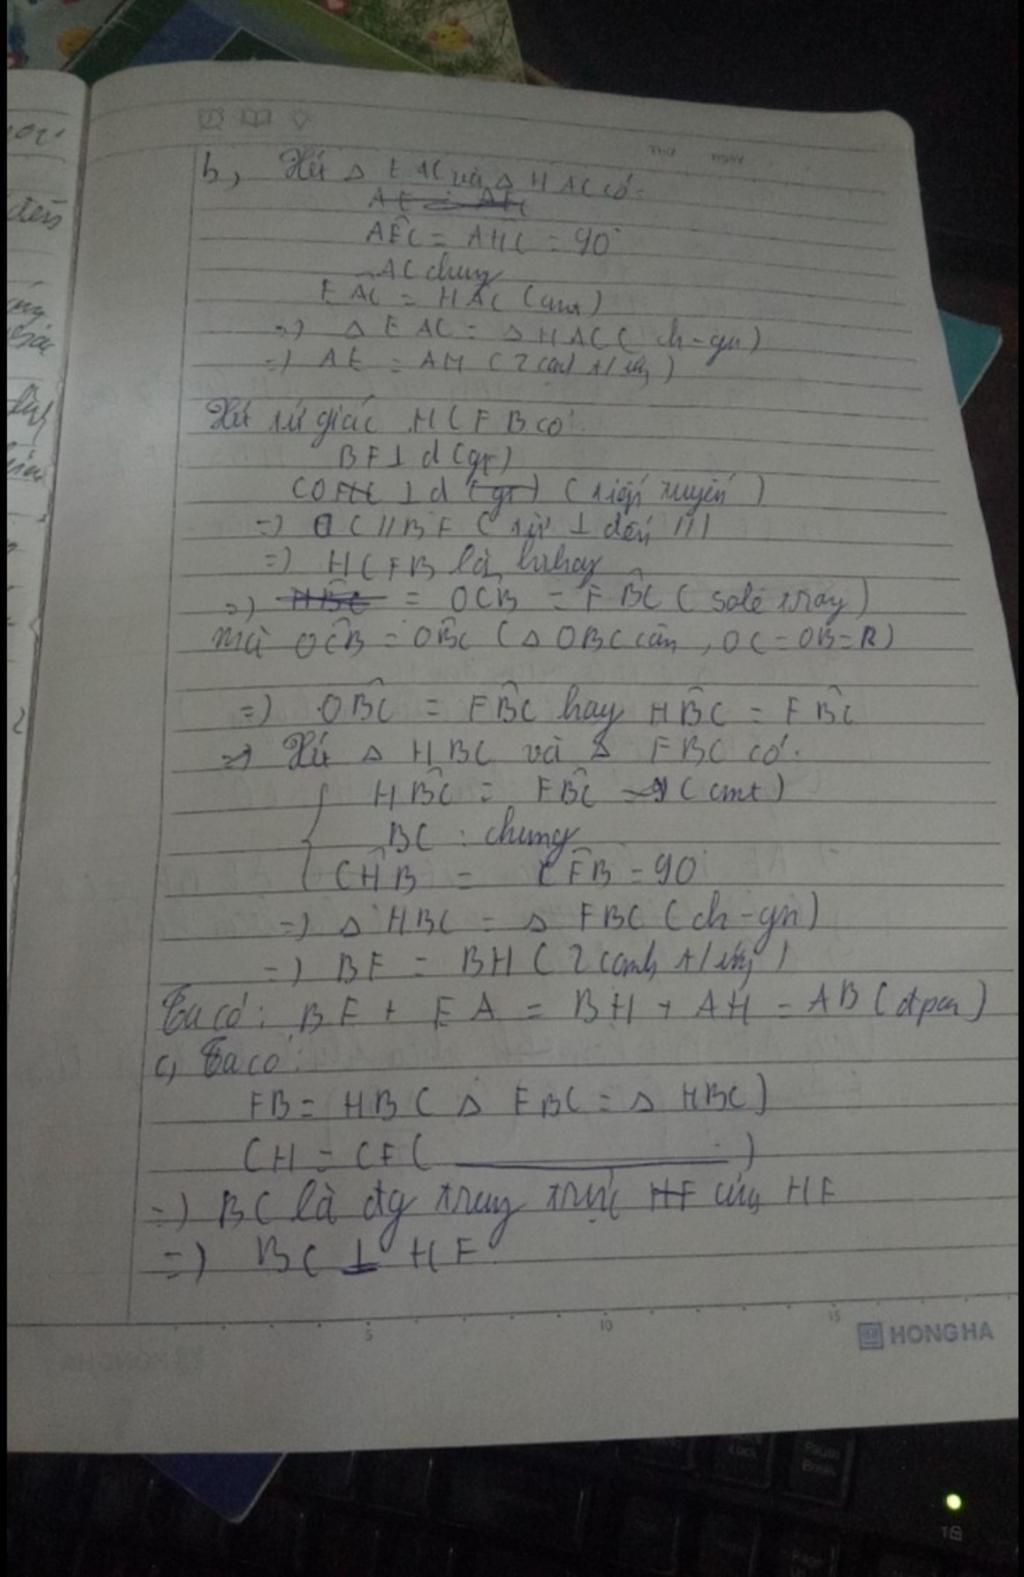 b, Xét Δ EAC và Δ HAC có:
AE = AH
AÊC = AHC = 90°
AC chung
EÂC = HAC (cmt)
=) Δ EAC = Δ HAC (ch-gn)
=) AE = AH (2 cạnh t/ứng)
Xét tứ giác HCFB có:
BF ⊥ d (gt)
CO ⊥ d (gt) (tiếp tuyến)
=) OC // BF (từ ⊥ đến //)
=) HCFB là hthang
=) HBC = OCB = FBC (sole trong)
mà OCB = OBC (Δ OBC cân, OC = OB = R)
=) OBC = FBC hay HBC = FBC
=) Xét Δ HBC và Δ FBC có:
HBC = FBC (cmt)
BC : chung
CHB = CFB = 90
=) Δ HBC = Δ FBC (ch-gn)
=) BF = BH (2 cạnh t/ứng)
Ta có: BF + EA = BH + AH = AB (đpcm)
c, Ta có:
FB = HB (Δ FBC = Δ HBC)
CH = CF ( )
=) BC là đg trung trực HF của HF
=) BC ⊥ HF
5 10 15
HONG HA